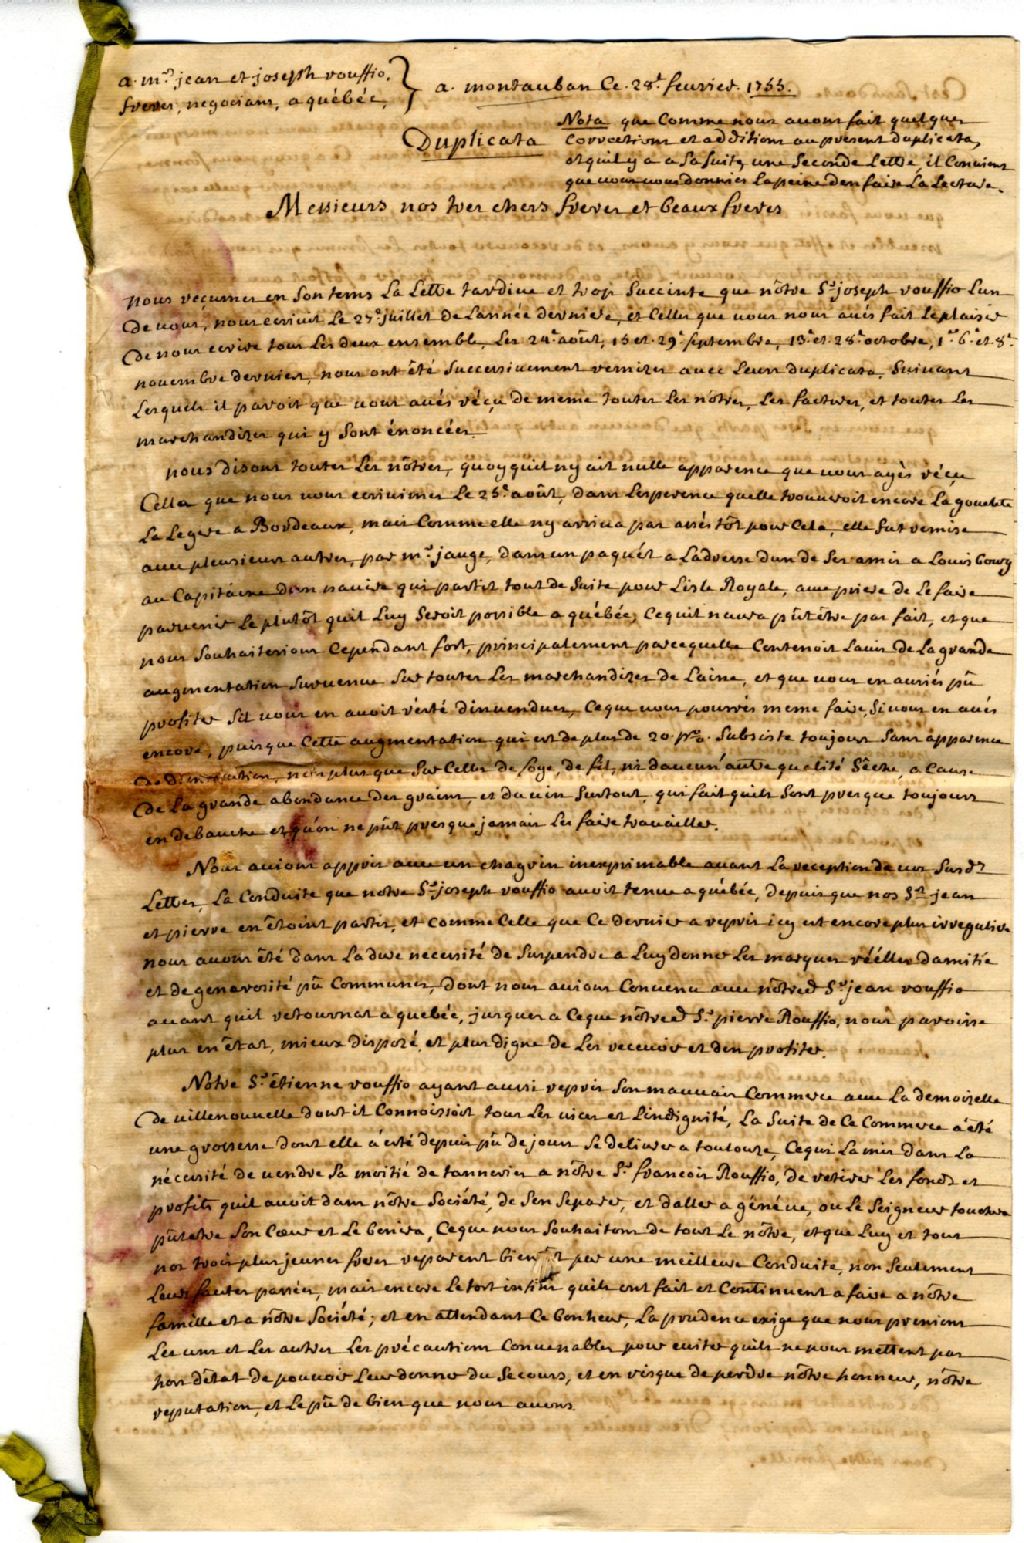 a. mrs. jean et joseph rouffio,
freres, negocians, a québéc,
a. montauban Ce. 28e. feurier. 1755.
Duplicata
Nota que Comme nous auons fait quelques
Corrections et additions au present duplicata,
et quil y a a sa suite une Seconde Lettre, il Conuient
que vous vous donniés La peine d'en faire La Lecture.
Messieurs nos tres chers freres et beaux freres
nous reçumes en Son tems La Lettre tardiue et trop Succinte que nôtre Sr. joseph rouffio Lun
de vous, nous ecriuit Le 27e juillet de Lannée derniere, et Celles que vous nous aués fait Le plaisir
de nous ecrire tous Les deux ensemble, Les 24e. août, 15 et. 29e. septembre, 13e. et. 28e. octobre, 1er. 6e. et. 8e.
nouembre dernier, nous ont été Successiuement remises auec Leurs duplicata, Suiuant
Lesquels il paroit que vous aués réçu de meme toutes Les nôtres, Les factures, et toutes Les
marchandizes qui y Sont énoncées.
nous disons toutes Les nôtres, quoy quil ny ait nulle apparence que vous ayès réçu
Celle que nous vous ecriuimes Le 25e. août, dans Lesperence quelle trouueroit encore La goualete
La Legere a Bordeaux, mais Comme elle ny arriua pas assés tôt pour Cela, elle fut remise
auec plusieurs autres, par mr. jauge, dans un paquét a Ladresse dun de Ses amis a Louisbourg
au Capitaine dun nauire qui partit tout de Suite pour Lisle Royale, auec priere de Le faire
paruenir Le plutôt quil Luy Seroit possible a québéc, Cequil naura pût être pas fait, et que
nous Souhaiterions Cependant fort, principalement parcequelle Contenoit Lauis de La grande
augmentation Suruenue Sur toutes Les marchandizes de Laine, et que vous en auriés pû
profiter Sil vous en auoit résté dinuendues, Ceque vous pourrés meme faire, Si vous en aués
encore, puisque Cette augmentation qui est de plus de 20 pr%. Subsiste toujours Sans apparence
de diminution, non plus que Sur Celles de Soye, de fil, ni daucun'autre qualité Séche, a Cause
de La grande abondance des grains, et du uin Surtout, qui fait quils Sont presque toujours
en debauche et quon ne pût presque jamais Les faire trauailler.
Nous auions appris auec un chagrin inexprimable auant La reception de vos Susdes
Lettres, La Conduite que notre Sr. joseph rouffio auoit tenue a québéc, depuis que nos Srs. jean
et pierre en êtoint partis, et Comme Celle que Ce dernier a repris icy est encore plus irreguliere
nous auons été dans La dure necessité de Suspendre a Luy donner Les marques réélles damitié
et de generosité pû Communes, dont nous auions Conuenu auec nôtred. Sr. jean rouffio
auant quil retournat a quebéc, jusques a Ceque nôtred. Sr. pierre Rouffio, nous paroisse
plus en êtat, mieux disposé, et plus digne de Les receuoir et d'en profiter.
Nôtre Sr. êtienne rouffio ayant aussi repris Son mauuais Commerce auec La demoiselle
de uillenouuelle dont il Connoissoit tous Les uices et Lindignité, La Suite de Ce Commerce a été
une grossesse dont elle a esté depuis pû de jours Se deliurer a toulouze, Cequi La mis dans La
nécessité de uendre Sa moitié de tannerie a nôtre Sr. francois Rouffio, de retirer Les fonds et
profits quil auoit dans nôtre Société, de Sen Separer, et daller a généue, où Le Seigneur touchera
pûtetre Son Cœur et Le benira, Ceque nous Souhaitons de tout Le nôtre, et que Luy et tous
nos trois plus jeunes freres reparent bientôt par une meilleure Conduite, non Seulement
Leurs fautes passées, mais encore Le tort infini quils ont fait et Continuent a faire a nôtre
famille et a nôtre Société; et en attendant Ce bonheur, La prudence exige que nous prenions
Les uns et Les autres Les précautions Conuenables pour euiter quils ne nous mettent pas
hors d'êtat de pouuoir Leur donner du Secours, et en risque de perdre nôtre honneur, nôtre
reputation, et Le pû de bien que nous auons